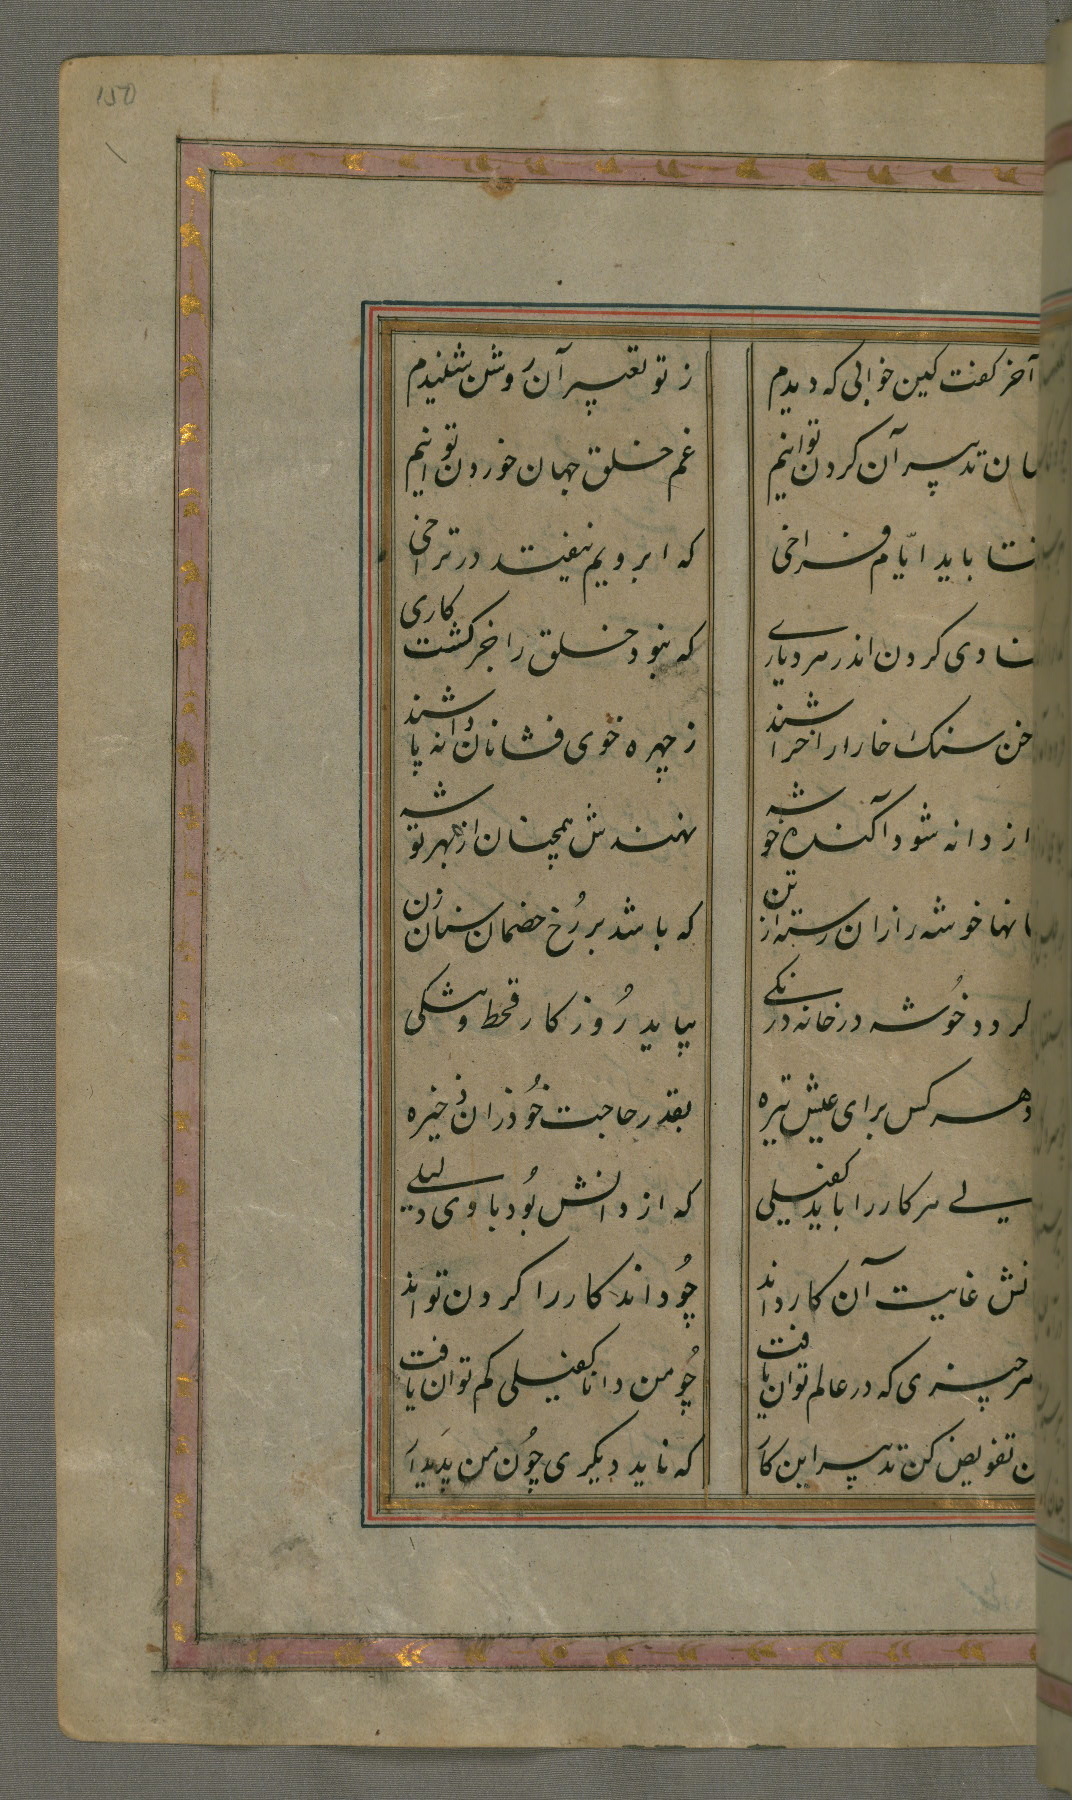 150
آخر کفت کین خوابی که دیدم
ز تو تعبیر آن روشن شنیدم
سان تدبیر آن کردن توانیم
غم خلق جهان خوردن توانیم
باید ایّام فراخی
که ابر و یم نیفتد در تراخی
منادی کردن اندر هر دیاری
که نبود خلق را جز کشت کاری
خن سنک خارا را خراشند
ز چهره خوی فشانان دانه پاشند
از دانه شود آکنده خوشه
نهندش همچنان از بهر توشه
نها خوشه را زان رسته از تن
که باشد بر رُخ خصمان سنان زن
کردد خُوشه در خانه درنکی
بپاید رُوز کار قحط و تنکی
هر کس برای عیش تیره
بقدر حاجت خُود زان ذخیره
لی هر کار را باید کفیلی
که از دانش بُود با وی دلیلی
نش غایت آن کار داند
چُو داند کار را کردن تواند
هر چیزی که در عالم توان یافت
چُو من دانا کفیلی کم توان یافت
تفویض کن تدبیر این کار
که ناید دیکری چُون من پدیدار